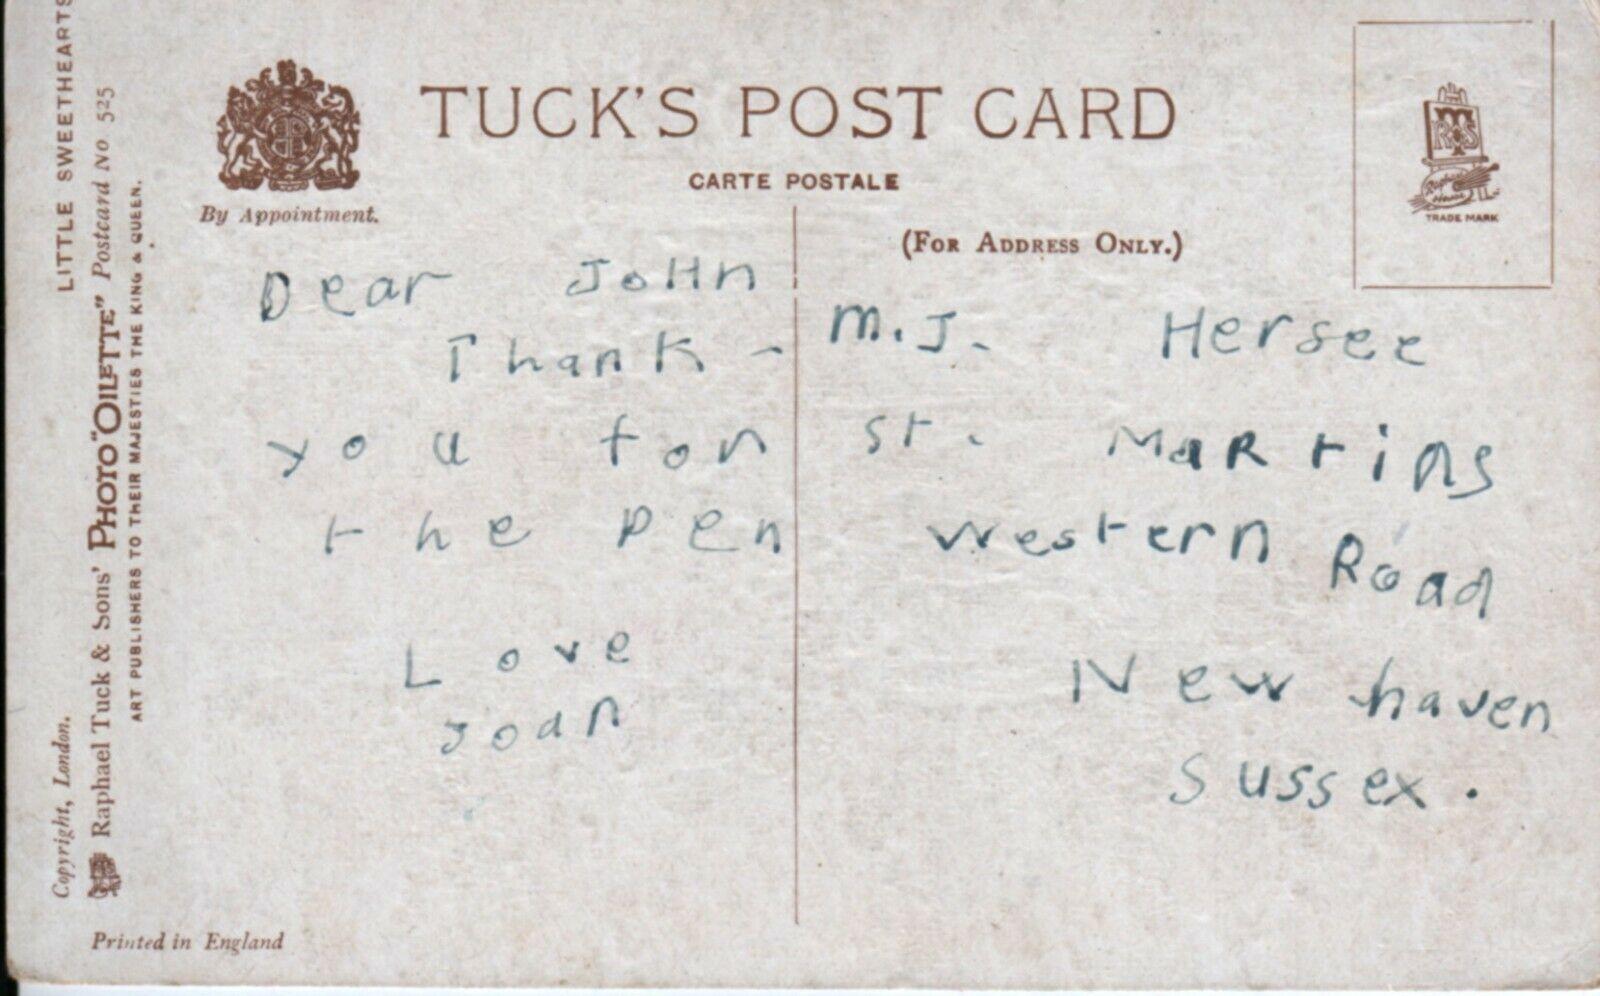 TUCK'S POST CARD
CARTE POSTALE
By Appointment.
(FOR ADDRESS ONLY.)
TRADE MARK
Dear JoHn
Thank -
you for
the pen
Love
Joan
M.J. Hersee
St. MaRtins
Western Road
New haven
Sussex.
LITTLE SWEETHEARTS
Copyright, London.
Raphael Tuck & Sons' PHOTO "OILETTE" Postcard No 525
ART PUBLISHERS TO THEIR MAJESTIES THE KING & QUEEN.
Printed in England